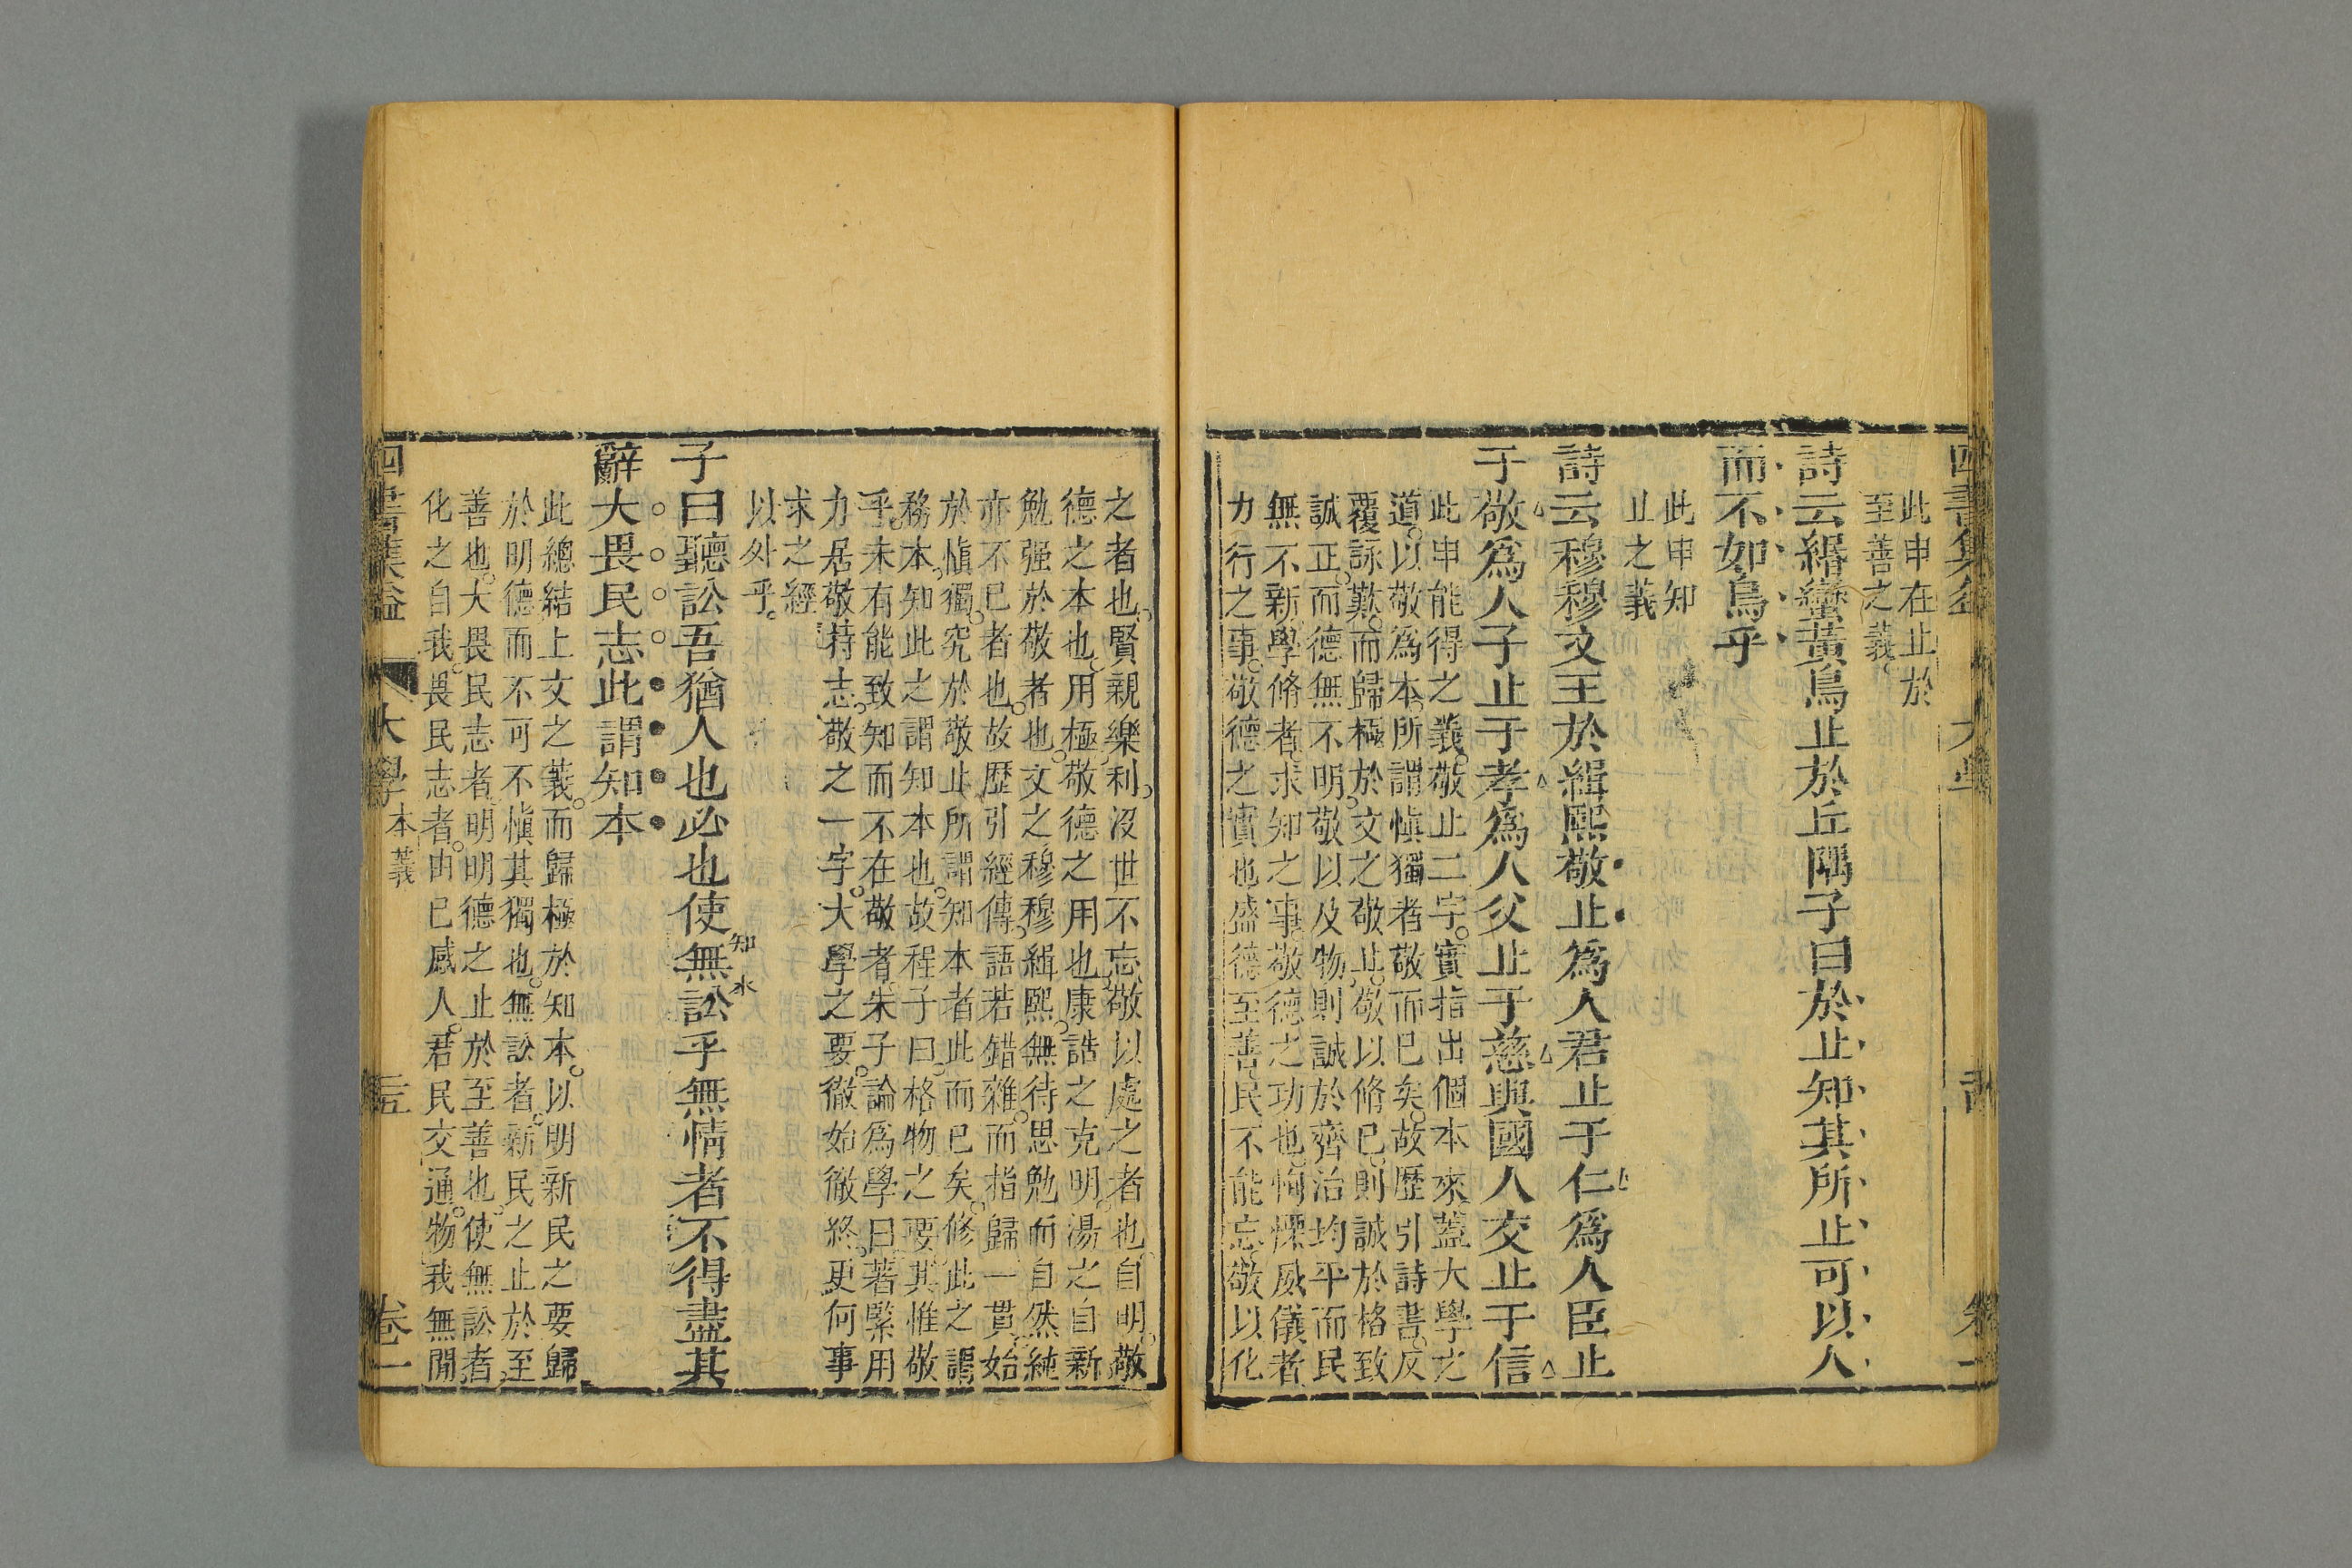 此申在止於
至善之義
詩云緡蠻黃鳥止於丘隅子曰於止知其所止可以人
而不如鳥乎
此申知
止之義
詩云穆穆文王於緝熙敬止爲人君止于仁爲人臣止
于敬爲人子止于孝爲人父止于慈與國人交止于信
此申能得之義敬止二字實指出個本來蓋大學之
道以敬爲本所謂愼獨者敬而已矣故歷引詩書反
覆詠歎而歸極於文之敬止敬以脩已則誠於格致
誠正而德無不明敬以及物則誠於齊治均平而民
無不新學脩者求知之事敬德之功也恂慄威儀者
力行之事敬德之實也盛德至善民不能忘敬以化
之者也賢親樂利沒世不忘敬以處之者也自明敬
德之本也用極敬德之用也康誥之克明湯之自新
勉强於敬者也文之穆穆緝熙無待思勉而自然純
亦不已者也故歷引經傳語若錯雜而指歸一貫始
於愼獨究於敬止所謂知本者此而已矣修此之謂
務本知此之謂知本也故程子曰格物之要其惟敬
乎未有能致知而不在敬者朱子論爲學曰著緊用
力居敬持志敬之一字大學之要徹始徹終更何事
求之經
以外乎
子曰聽訟吾猶人也必也使無訟乎無情者不得盡其
知 水
辭大畏民志此謂知本
此總結上文之義而歸極於知本以明新民之要歸
於明德而不可不愼其獨也無訟者新民之止於至
善也大畏民志者明明德之止於至善也使無訟者
化之自我畏民志者由已感人君民交通物我無閒
四書集益 大學 本義 卷一